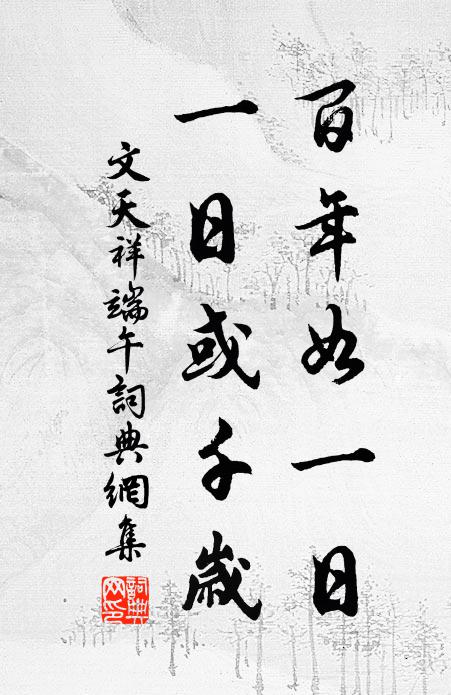 百年如一日
一日或千歲
文天祥端午詞典網集
詞典
網印